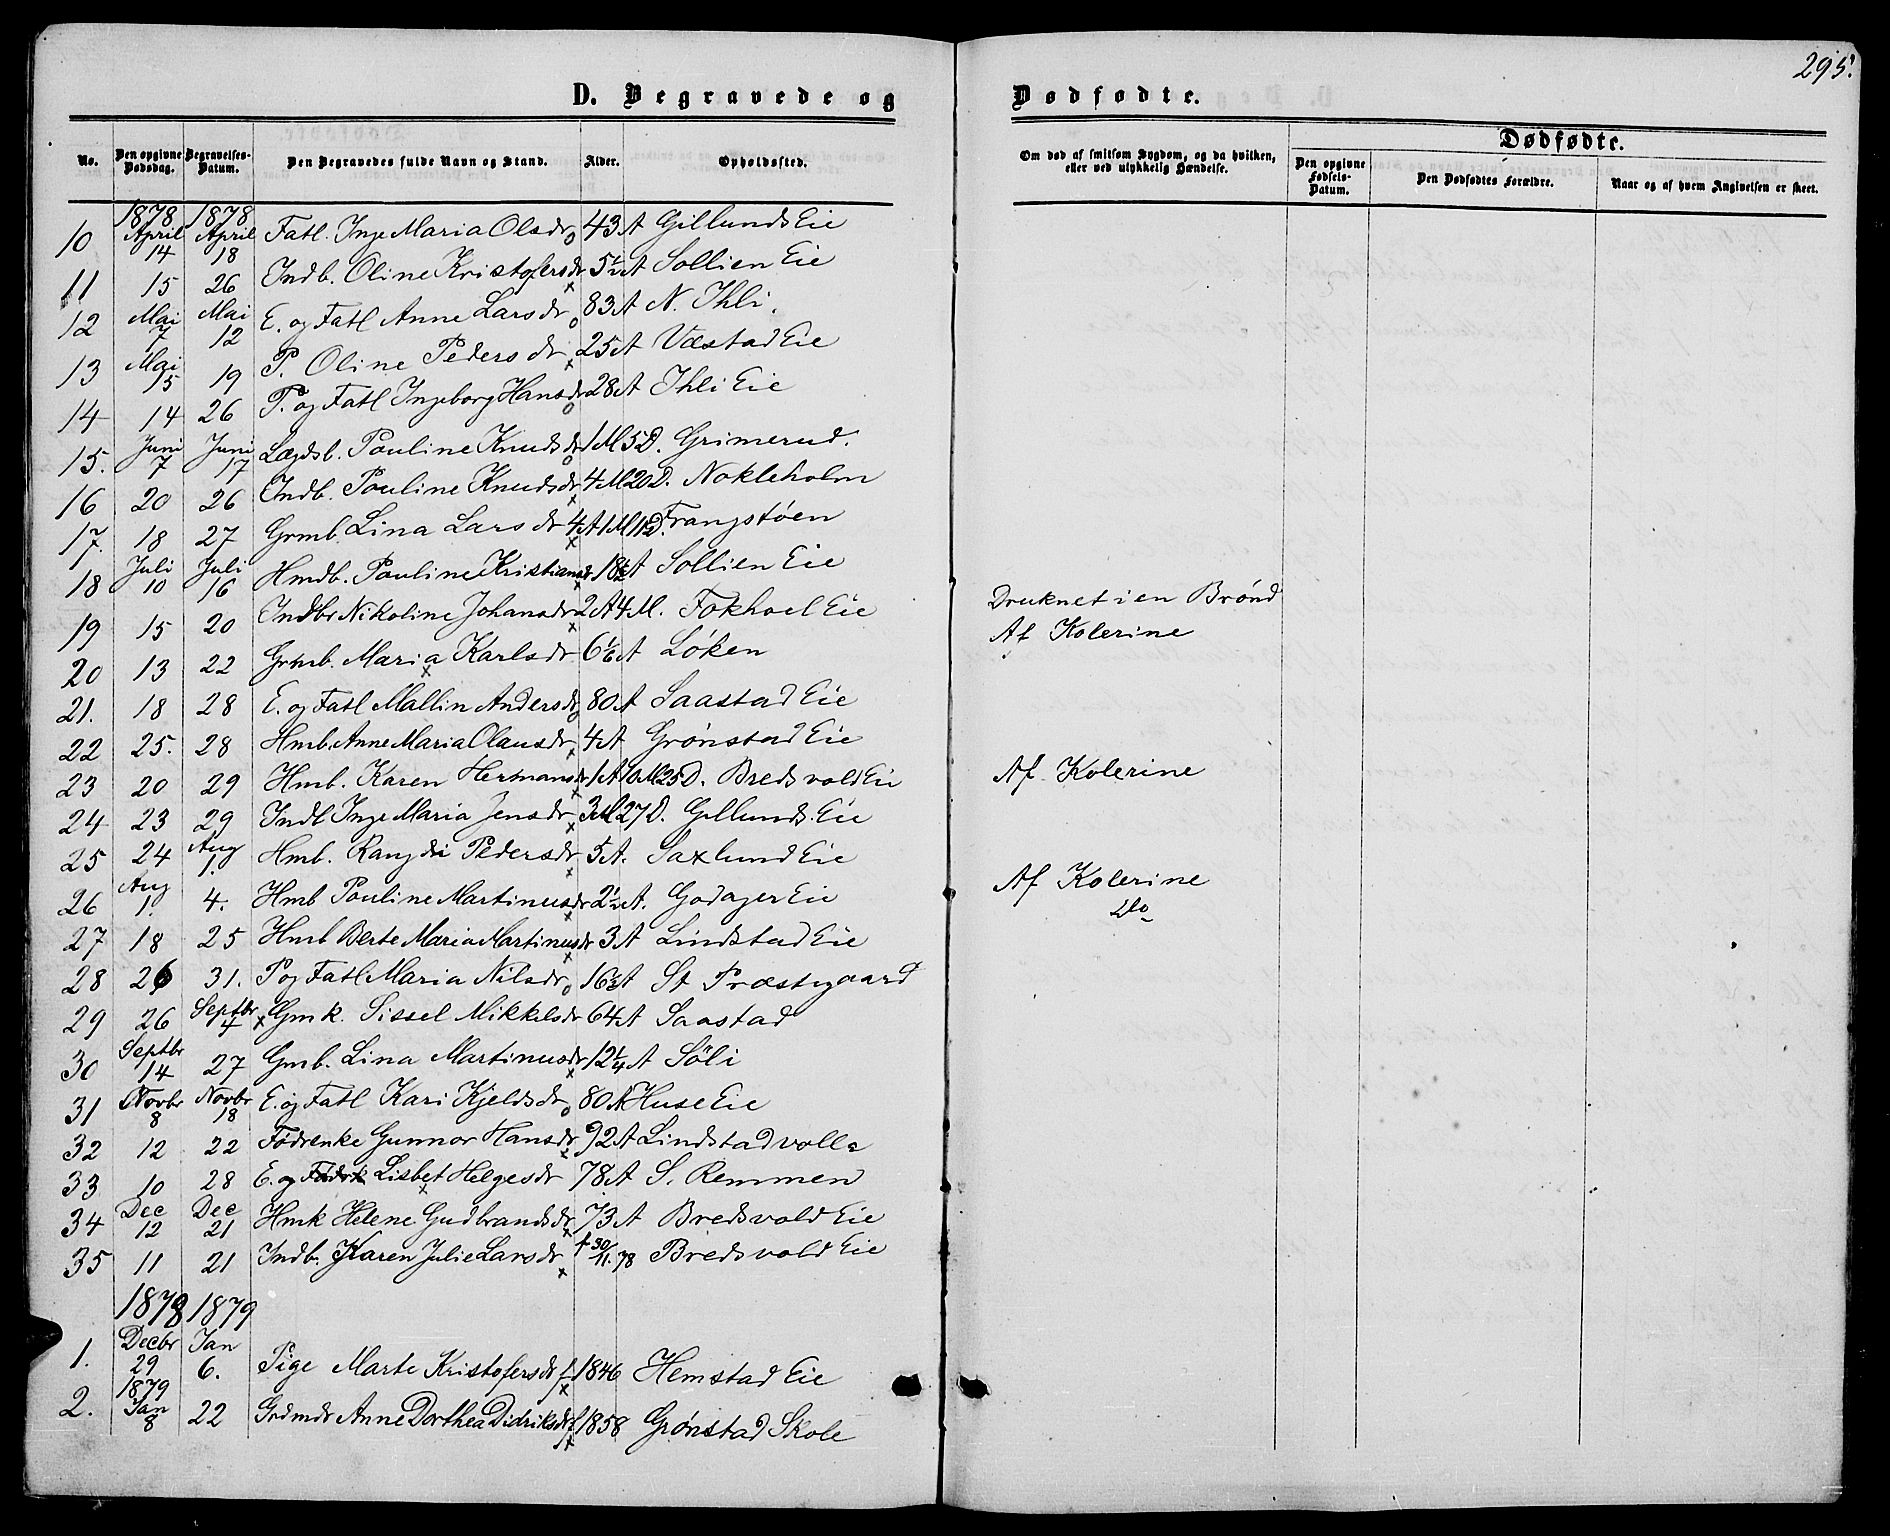 295.
D. Begravede og Dødfødte.
No. Den opgivne Dødsdag. Begravelses-Datum. Den Begravedes fulde Navn og Stand. Alder. Opholdssted. Om død af smitsom Sygdom, og da hvilken, eller ved ulykkelig Hændelse. Dødfødte. Den opgivne Fødsels-Datum. Den Dødfødtes Forældre. Naar og af hvem Angivelsen er skeet.
1878 1878
10 April 14 April 18 Fatl. Inge Maria Olsdr o 43 A Gillunds Eie
11 15 26 Indb. Oline Kristofersdr x 5½ A Sollien Eie
12 Mai 7 Mai 12 E. og Fatl Anne Larsdr o 83 A N. Ihli.
13 Mai 15 19 P. Oline Pedersdr x 25 A Væstad Eie
14 14 26 P. og Fatl Ingeborg Hansdr o 28 A Ihli Eie
15. Juni 7 Juni 17 Lægdsb. Pauline Knudsdr o 1 M 5 D. Grimerud.
16 20 26 Indb. Pauline Knudsdr x 4 M 20 D. Nokleholm
17. 18 27 Grmb. Lina Larsdr x 4 A 1 M 11 D. Frangstøen
18 Juli 10 Juli 16 Hmdb. Pauline Kristiansdr x 18½ A Sollien Eie
19 15 20 Indbr Nikoline Johansdr x 2 A 4 M. Fokhoel Eie Druknet i en Brønd
20 13 22 Grmb. Maria Karlsdr x 6 1/6 A Løken Af Kolerine
21. 18 28 E. og Fatl Mallin Andersdr o 80 A Saastad Eie
22 25. 28 Hmb. Anne Maria Olausdr x 4 A Grønstad Eie
23 20 29 Hmb. Karen Hermansdr x 1 A 10 M 25 D. Bredsvold Eie Af Kolerine
24 23 29 Indl Inge Maria Jensdr x 3 M 27 D. Gillunds Eie
25 24 Aug 1. Hmb. Rangdi Pedersdr x 5 A. Saxlund Eie
26 Aug 1. 4. Hmb Pauline Martinusdr x 2½ A. Godager Eie Af Kolerine
27 18 25 Hmb Berte Maria Martinusdr x 3 A Lindstad Eie Do
28 26 31. P og Fatl Maria Nilsdr o 16½ A St Præstgaard
29 26 Septbr 4 x Gmk. Sissel Mikkelsdr 64 A Saastad
30 Septbr 14 27 Gmb. Lina Martinusdr x 12¼ A Söli
31 Novbr 8 Novbr 18 E. og Fatl Kari Kjeldsdr o 80 A Huse Eie
32 12 22 Födrenke Gunnor Hansdr x 92 A Lindstadvolla
33 10 28 E. og Födrk Lisbet Helgesdr x 78 A S. Remmen
34 Dec 12 Dec 21 Hmk Helene Gudbrandsdr x 73 A Bredsvold Eie
35 11 21 Indb. Karen Julie Larsdr x f 30/11.78 Bredsvold Eie
1878 1879
1. Decbr 29 Jan 6. Pige Marte Kristofersdr x f. 1846 Hemstad Eie
2. 1879 Jan 8 22 Grdmdr Anne Dorthea Didriksdr x f 1858 Grønstad Skole